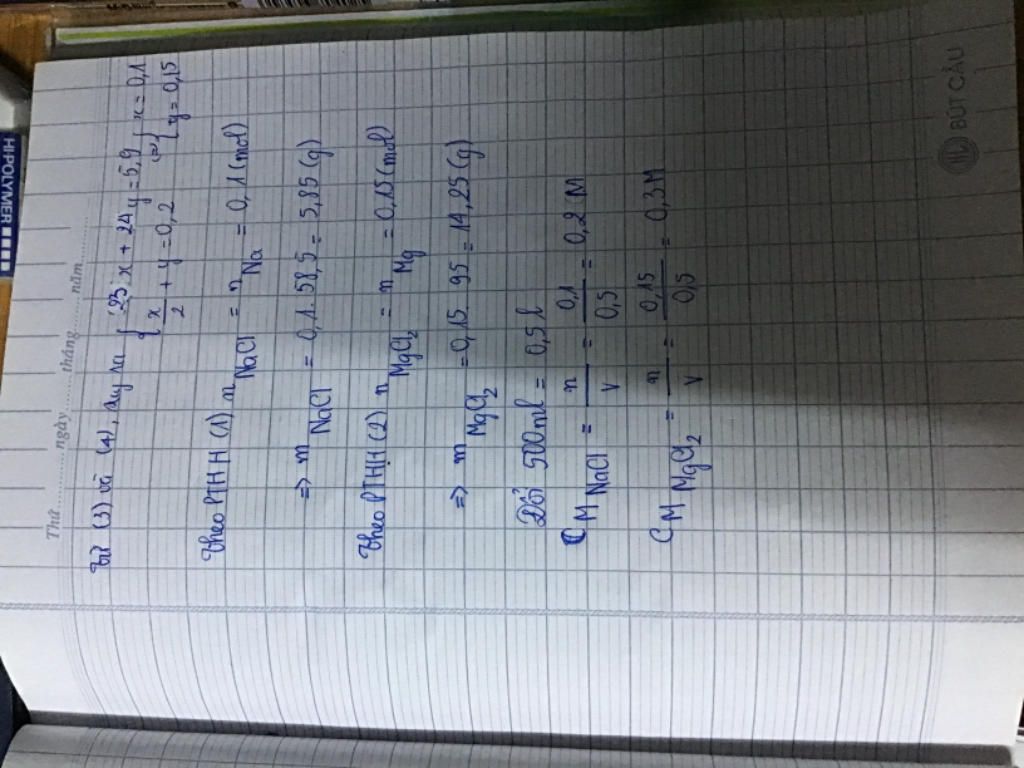 Thứ ........ ngày ........ tháng ........ năm ........
Từ (3) và (4), suy ra { 23.x + 24y = 5,9
x/2 + y = 0,2
(=) { x = 0,1
y = 0,15
Theo PTHH (1) n NaCl = n Na = 0,1 (mol)
=> m NaCl = 0,1 . 58,5 = 5,85 (g)
Theo PTHH (2) n MgCl2 = n Mg = 0,15 (mol)
=> m MgCl2 = 0,15 . 95 = 14,25 (g)
Đổi 500ml = 0,5 l
CM NaCl = n/V = 0,1/0,5 = 0,2 M
CM MgCl2 = n/V = 0,15/0,5 = 0,3M
BÚT CÂU
HI-POLYMER